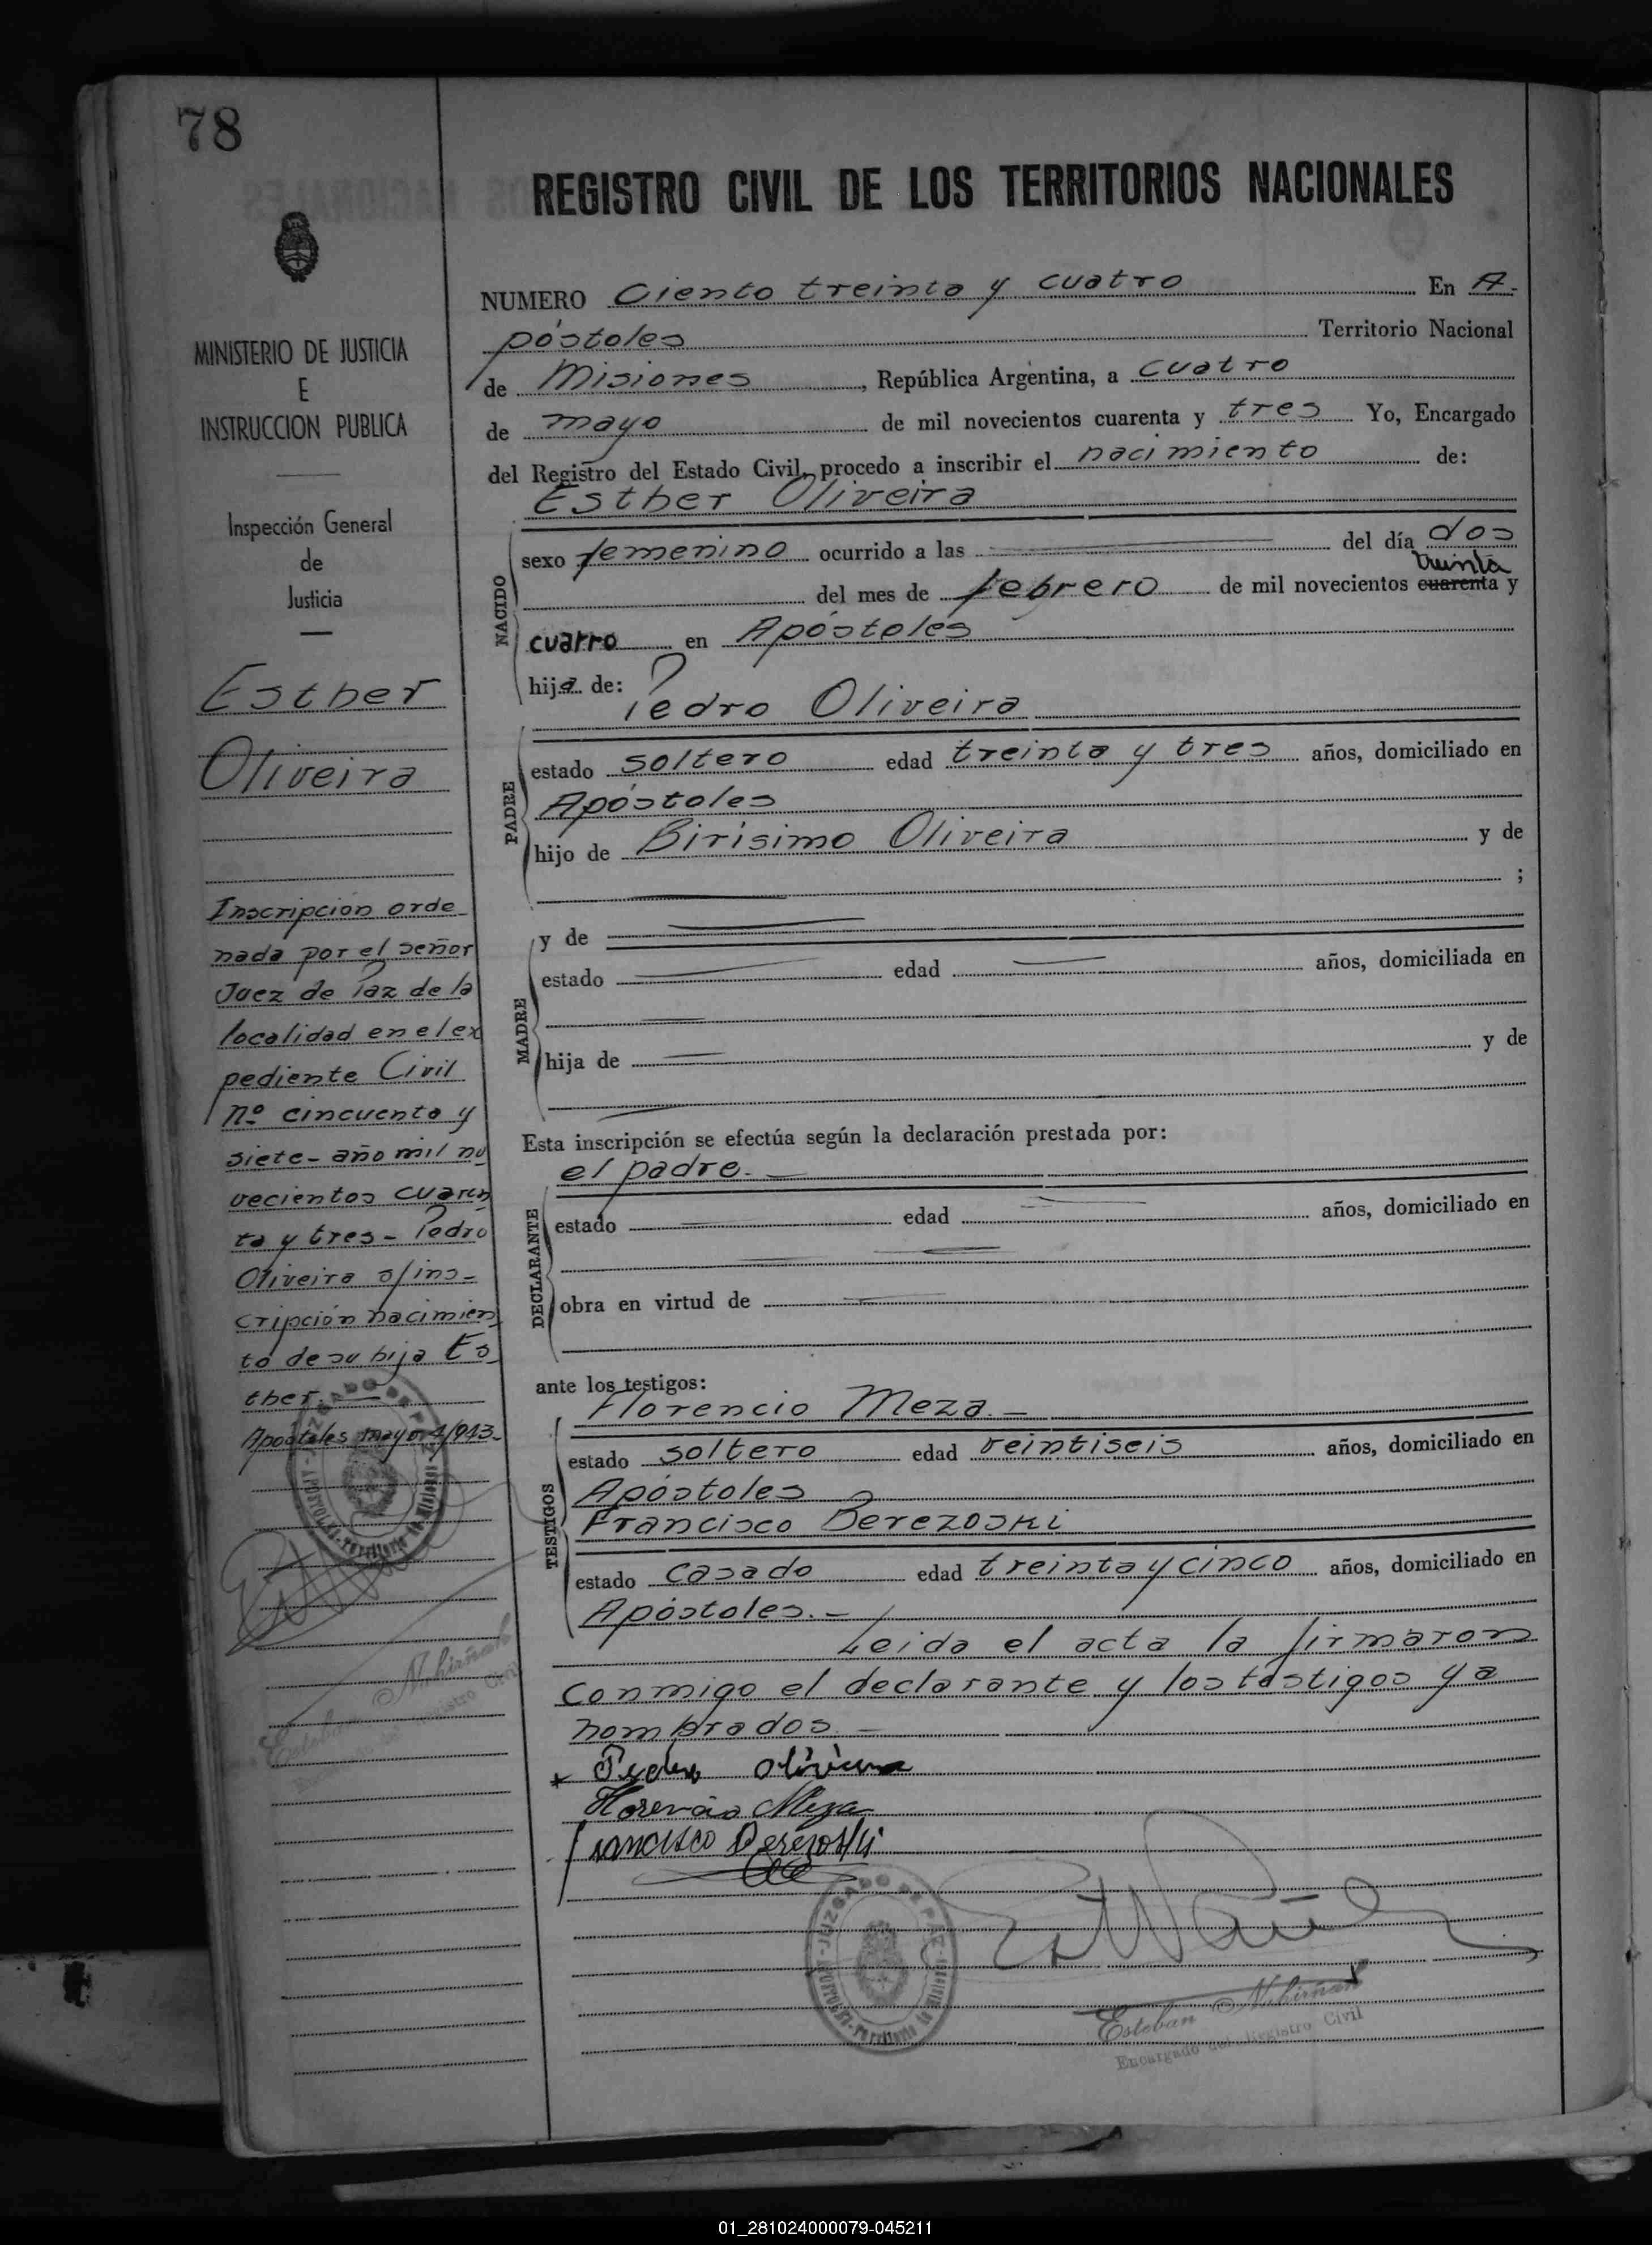 78
REGISTRO CIVIL DE LOS TERRITORIOS NACIONALES
MINISTERIO DE JUSTICIA
E
INSTRUCCION PUBLICA
Inspección General
de
Justicia
Esther
Oliveira
Inscripción orde
nada por el señor
Juez de Paz de la
localidad en el ex
pediente Civil
Nº cincuenta y
siete - año mil no
vecientos cuaren
ta y tres - Pedro
Oliveira s/ins-
cripción nacimien
to de su hija Es
ther. —
Apóstoles mayo 4/943-
JUZGADO DE PAZ
APOSTOLES - Territorio de Misiones
Esteban Nuhirñak
NUMERO Ciento treinta y cuatro En A-
póstoles Territorio Nacional
de Misiones, República Argentina, a cuatro
de mayo de mil novecientos cuarenta y tres Yo, Encargado
del Registro del Estado Civil, procedo a inscribir el nacimiento de:
Esther Oliveira
NACIDO
sexo femenino ocurrido a las del día dos
treinta
del mes de febrero de mil novecientos cuarenta y
cuatro en Apóstoles
hija de:
Pedro Oliveira
PADRE
estado soltero edad treinta y tres años, domiciliado en
Apóstoles
hijo de Birisimo Oliveira y de
;
MADRE
y de
estado edad años, domiciliada en
hija de y de
Esta inscripción se efectúa según la declaración prestada por:
el padre.-
DECLARANTE
estado edad años, domiciliado en
obra en virtud de
ante los testigos:
Florencio Meza.-
TESTIGOS
estado soltero edad veintiseis años, domiciliado en
Apóstoles
Francisco Berezoski
estado casado edad treinta y cinco años, domiciliado en
Apóstoles.-
Leida el acta la firmaron
conmigo el declarante y los testigos ya
nombrados.-
Pedro Oliveira
Florencio Meza
Francisco Berezoski
JUZGADO DE PAZ
APOSTOLES - Territorio de Misiones
Esteban
Encargado del Registro Civil
01_281024000079-045211